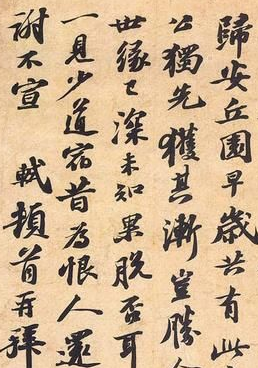 歸安丘園早歲共有此
公獨先獲其漸豈勝
世緣已深未知果脫否耳
一見少道宿昔為恨人還
謝不宣 軾頓首再拜